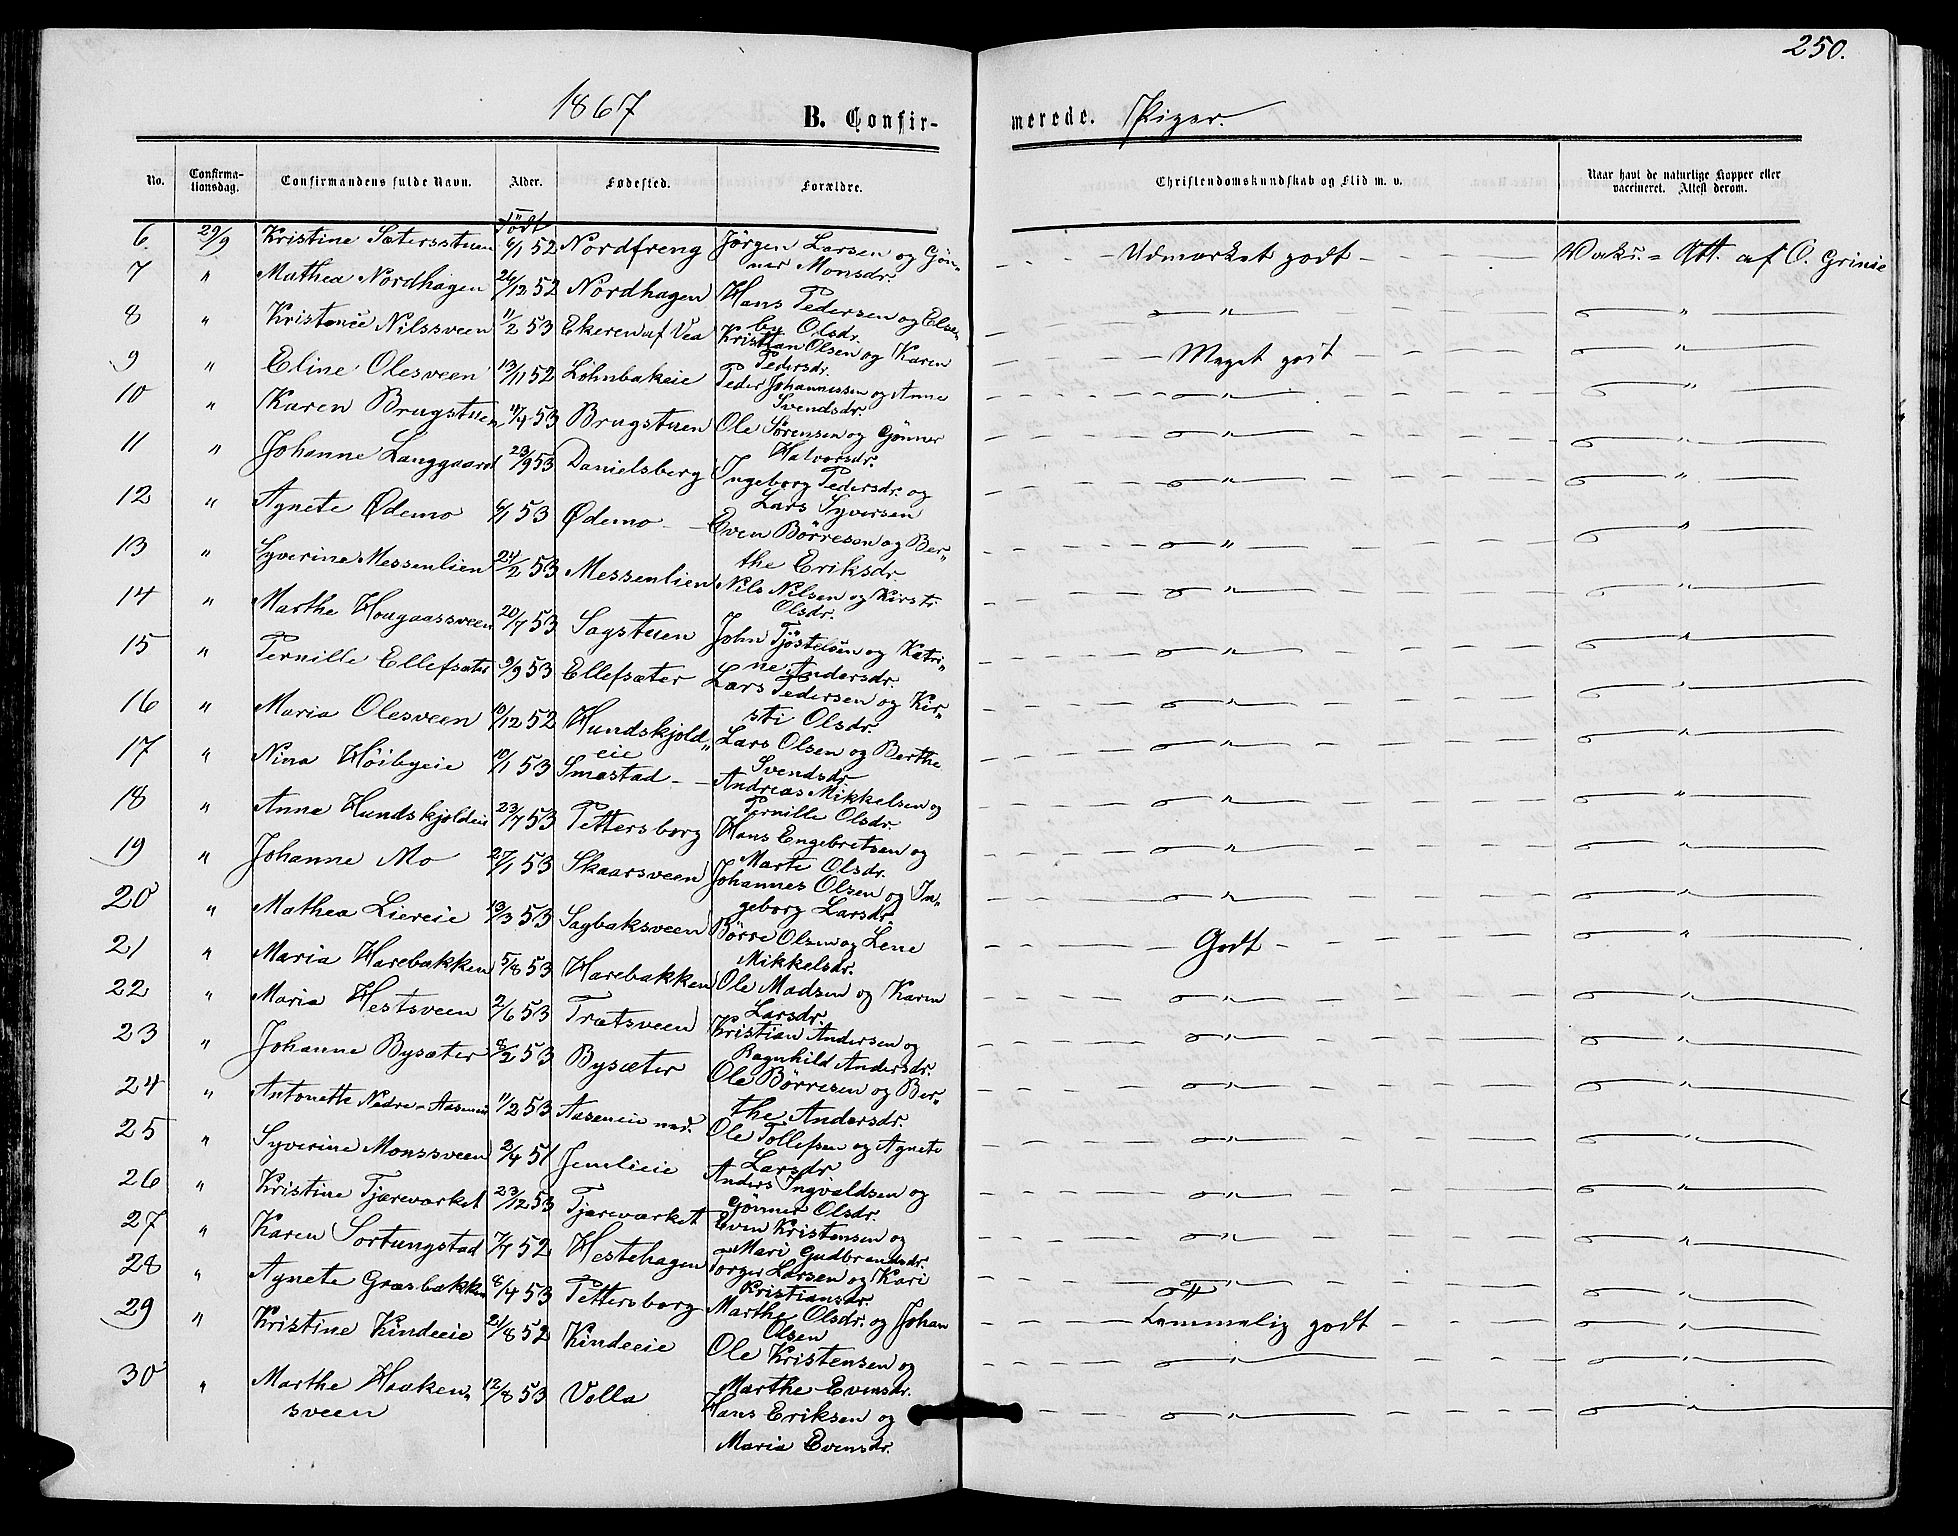 250.
1867 B. Confir- merede. Piger.
No. Confirma-tionsdag. Confirmandens fulde Navn. Alder. Fødested. Forældre. Christendomskundskab og Flid m. v. Naar havt de naturlige Kopper eller vaccineret. Attest derom.
Født
6. 29/9 Kristine Sætersstuen 6/1 52 Nordfreng Jørgen Larsen og Gøn„ner Monsdr. Udmærket godt Vaks. = Att. af O. Grinie
7 " Mathea Nordhagen 26/12 52 Nordhagen Hans Pedersen og Else„by Olsdr. " "
8 " Kristence Nilssveen 11/2 53 Ekeren af Vea Kristian Olsen og Karen Pedersdr. Meget godt "
9 " Eline Olesveen 13/11 52 Lohnbakeie Peder Johannessen og Anne Svendsdr. " "
10 " Karen Brugstuen 4/4 53 Brugstuen Ole Sørensen og Gønner Halvorsdr. " "
11 " Johanne Langgaard 23/9 53 Danielsberg Ingeborg Pedersdr. og Lars Syversen " "
12 " Agnete Ødemo 6/1 53 Ødemo Even Børresen og Ber„the Eriksdr " "
13 " Syverine Messenlien 24/2 53 Messenlien Nils Nilsen og Kirsti Olsdr. " "
14 " Marthe Hougaassveen 20/7 53 Sagstuen John Tjøstelsen og Katri„ne Andersdr. " "
15 " Pernille Ellefsæter 9/9 53 Ellefsæter Lars Pedersen og Kir„sti Olsdr. " "
16 " Maria Olesveen 10/12 52 Hundskjold„eie Lars Olsen og Berthe Svendsdr " "
17 " Nina Høibyeie 10/1 53 Smæstad Andreas Mikkelsen og Pernille Olsdr. " "
18 " Anne Hundskjoldeie 23/7 53 Pettersborg Hans Engebretsen og Marte Olsdr. " "
19 " Johanne Mo 27/1 53 Skaarsveen Johannes Olsen og In„geborg Larsdr. " "
20 " Mathea Liereie 13/3 53 Sagbaksveen Børre Olsen og Lene Mikkelsdr. " "
21 " Maria Harebakken 5/8 53 Harebakken Ole Madsen og Karen Larsdr. Godt "
22 " Maria Hestsveen 2/6 53 Trætsveen Kristian Andersen og Ragnhild Andersdr. " "
23 " Johanne Bysæter 8/2 53 Bysæter Ole Børresen og Ber„the Andersdr. " "
24 " Antonette Nedre-Aaseneie 11/2 53 Aaseneie ned. Ole Tollefsen og Agnete Larsdr " "
25 " Syverine Monssveen 2/4 51 Jemlieie Anders Ingvaldsen og Gønner Olsdr. " "
26 " Kristine Tjæreværket 23/12 53 Tjæreværket Even Kristensen og Mari Gudbrandsdr. " "
27 " Karen Sortungstad 7/7 52 Hestehagen Torger Larsen og Kari Kristiansdr. " "
28 " Agnete Græsbakken 8/4 53 Pettersborg Marthe Olsdr. og Johan Olsen " "
29 " Kristine Kindeeie 21/8 52 Kindeeie Ole Kristensen og Marthe Evensdr. Temmelig godt "
30 " Marthe Haaken„sveen 12/8 53 Volla Hans Eriksen og Maria Evensdr. " "